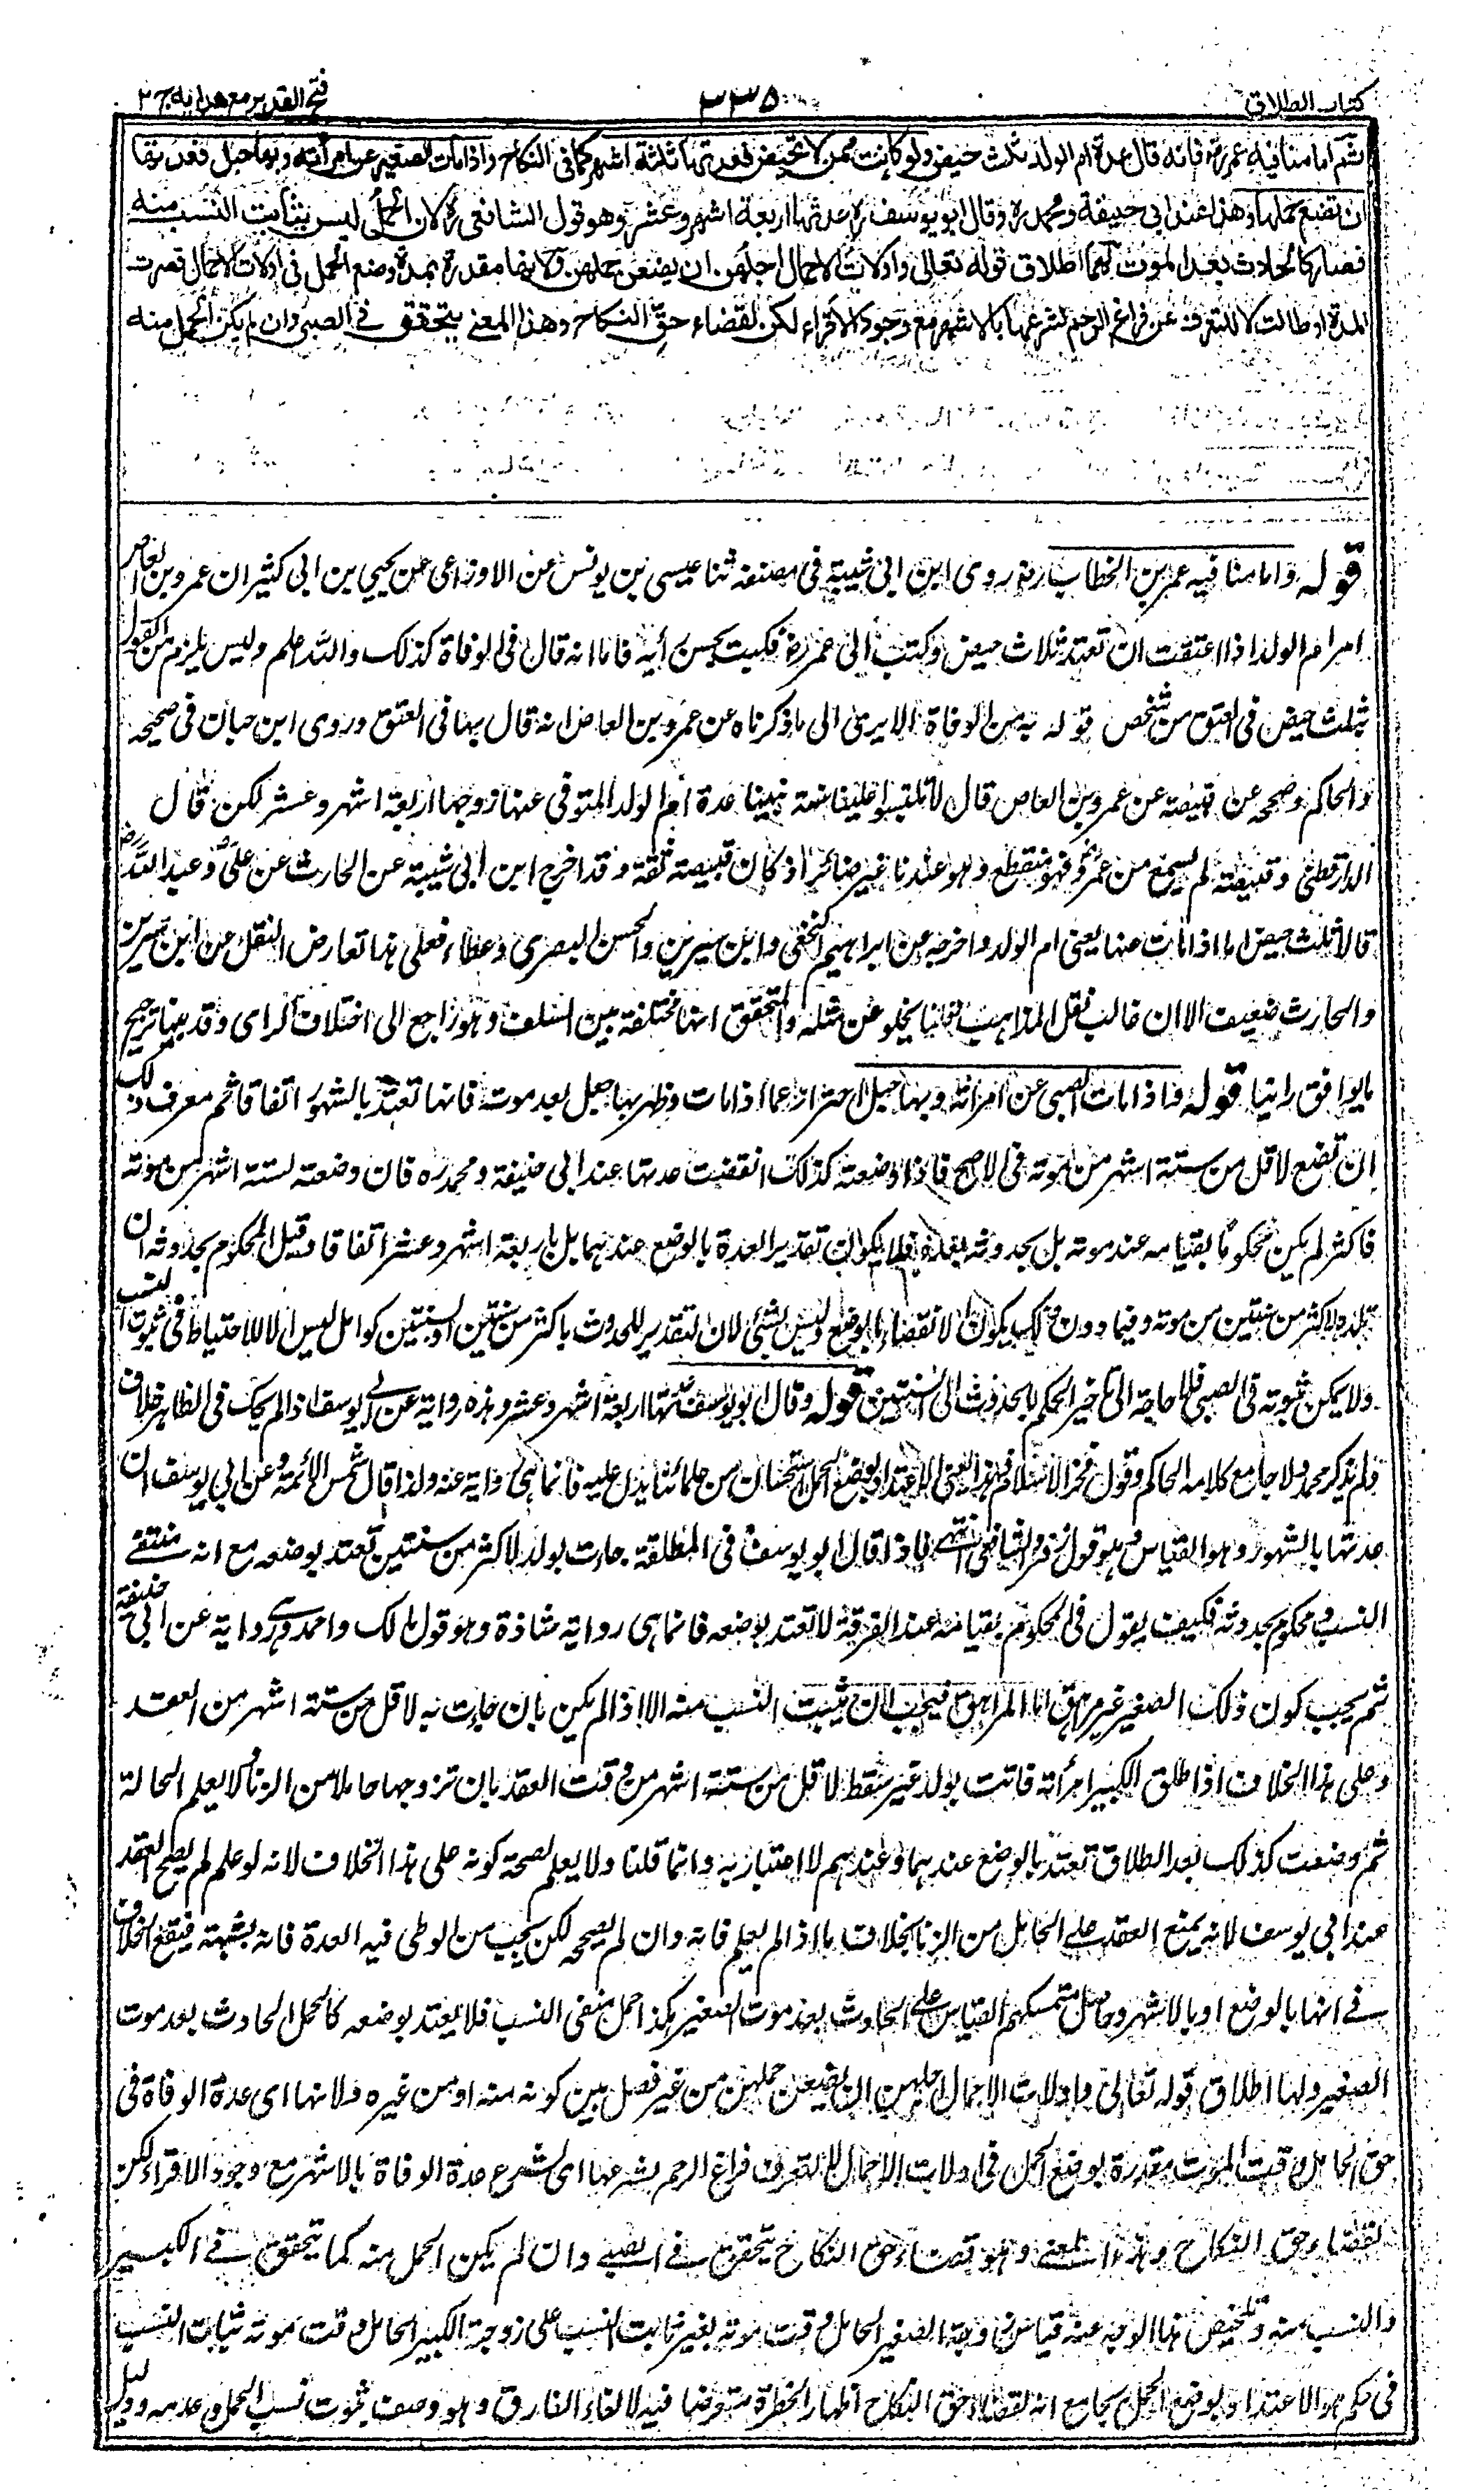 كتاب الطلاق
٣٣٥
فتح القدير مع هدايه ج ٢
ثم امامنا فيه عمر رض فانه قال عدة ام الولد ثلث حيض ولو كانت ممن لا تحيض فعدتها ثلثة اشهر كما فى النكاح واذا مات الصغير عن امرأته وبها حبل فعدتها
ان تضع حملها وهذا عند ابى حنيفة ومحمد ره وقال ابو يوسف ره عدتها اربعة اشهر وعشر وهو قول الشافعى ره لان الحمل ليس بثابت النسب منه
فصار كالحادث بعد الموت لهما اطلاق قوله تعالى واولات الاحمال اجلهن ان يضعن حملهن ولانها مقدرة بمدة وضع الحمل فى اولات الاحمال قصرت
المدة او طالت لا للتعرف عن فراغ الرحم لشرعها بالاشهر مع وجود الاقراء لكن لقضاء حق النكاح وهذا المعنى يتحقق فى الصبى وان لم يكن الحمل منه
قوله وامامنا فيه عمر بن الخطاب رض روى ابن ابى شيبة فى مصنفه ثنا عيسى بن يونس عن الاوزاعى عن يحيى بن ابى كثير ان عمرو بن العاص
امر ام الولد اذا اعتقت ان تعتد ثلاث حيض وكتب الى عمر رض فكتب بحسن رأيه فاما انه قال فى الوفاة كذلك والله اعلم وليس يلزم من القول
بثلث حيض فى العتق من شخص قوله به من الوفاة الا يرى الى ما ذكرناه عن عمرو بن العاص انه قال بها فى العتق وروى ابن حبان فى صحيحه
والحاكم وصححه عن قبيصة عن عمرو بن العاص قال لا تلبسوا علينا سنة نبينا عدة ام الولد المتوفى عنها زوجها اربعة اشهر وعشر لكن قال
الدارقطنى وقبيصة لم يسمع من عمرو فهو منقطع وهو عندنا غير ضائر اذ كان قبيصة ثقة وقد اخرج ابن ابى شيبة عن الحارث عن على وعبد الله رض
قالا ثلث حيض اما اذا مات عنها يعنى ام الولد واخرجه عن ابراهيم النخعى وابن سيرين والحسن البصرى وعطاء فعلى هذا تعارض النقل عن ابن سيرين
والحارث ضعيف الا ان غالب نقل المذاهب قلما يخلو عن مثله والمتحقق انها مختلفة بين السلف وهو راجع الى اختلاف الراى وقد بينا ترجيح
ما يوافق راينا قوله واذا مات الصبى عن امرأته وبها حبل احتراز عما اذا مات وظهر بها حبل بعد موته فانها تعتد بالشهور اتفاقا ثم معرف ذلك
ان تضع لاقل من ستة اشهر من موته فى الاصح فاذا وضعته كذلك انقضت عدتها عند ابى حنيفة ومحمد ره فان وضعته لستة اشهر من موته
فاكثر لم يكن محكوما بقيامه عند موته بل بحدوثه بعده فلا يكون تقدير العدة بالوضع عندهما بل باربعة اشهر وعشر اتفاقا وقيل المحكوم بحدوثه ان
تلده لاكثر من سنتين من موته وفيما دون ذلك يكون الانقضاء بالوضع وليس بشئ لان التقدير للحدوث باكثر من سنتين او سنتين كوامل ليس الا للاحتياط فى ثبوت النسب
ولا يمكن ثبوته فى الصبى فلا حاجة الى تاخير الحكم بالحدوث الى السنتين قوله وقال ابو يوسف عدتها اربعة اشهر وعشر وهذه رواية عن ابى يوسف اذ لم يحك فى الظاهر خلاف
ولم يذكر محمد ولا جامع كلامه الحاكم وقول فخر الاسلام فى هذا يعنى الاعتداد بوضع الحمل استحسان من علمائنا يدل عليه فانما هى رواية عنه ولذا قال شمس الائمة وعن ابى يوسف ان
عدتها بالشهور وهو القياس وهو قول زفر والشافعى انتهى فاذا قال ابو يوسف فى المطلقة جاءت بولد لاكثر من سنتين تعتد بوضعه مع انه منتفى
النسب ومحكوم بحدوثه فكيف يقول فى المحكوم بقيامه عند الفرقة لا تعتد بوضعه فانما هى رواية شاذة وهو قول مالك واحمد وهى رواية عن ابى حنيفة
ثم يجب كون ذلك الصغير غير مراهق اما المراهق فيجب ان يثبت النسب منه الا اذا لم يكن بان جاءت به لاقل من ستة اشهر من العقد
وعلى هذا الخلاف اذا طلق الكبير امرأته فاتت بولد غير سقط لاقل من ستة اشهر من وقت العقد بان تزوجها حاملا من الزنا ولا يعلم الحالة
ثم وضعت كذلك بعد الطلاق تعتد بالوضع عندهما وعندهم لا اعتبار به وانما قلنا ولا يعلم لصحة كونه على هذا الخلاف لانه لو علم لم يصح العقد
عند ابى يوسف لانه يمنع العقد على الحامل من الزنا بخلاف ما اذا لم يعلم فانه وان لم يصححه لكن يجب من الوطى فيه العدة فانه بشبهة فيقع الخلاف
فى انها بالوضع او بالاشهر وحاصل متمسكهم القياس على الحادث بعد موت الصغير هكذا حمل منفى النسب فلا يعتد بوضعه كالحمل الحادث بعد موت
الصغير ولهما اطلاق قوله تعالى واولات الاحمال اجلهن ان يضعن حملهن من غير فصل بين كونه منه او من غيره ولانها اى عدة الوفاة فى
حق الحامل وقت الموت مقدرة بوضع الحمل فى اولات الاحمال لا للتعرف فراغ الرحم لشرعها اى لشرع عدة الوفاة بالاشهر مع وجود الاقراء لكن
لقضاء حق النكاح وهذا المعنى وهو قضاء حق النكاح يتحقق فى الصبى وان لم يكن الحمل منه كما يتحقق فى الكبير
والنسب منه وتلخيص هذا الوجه عنه قياس زوجة الصغير الحامل وقت موته بغير ثابت النسب على زوجة الكبير الحامل وقت موته بثابت النسب
فى حكم هو الاعتداد بوضع الحمل بجامع انه لقضاء حق النكاح اظهارا لخطره متعرضا فيه لالغاء الفارق وهو وصف ثبوت نسب الحمل وعدمه ودليل